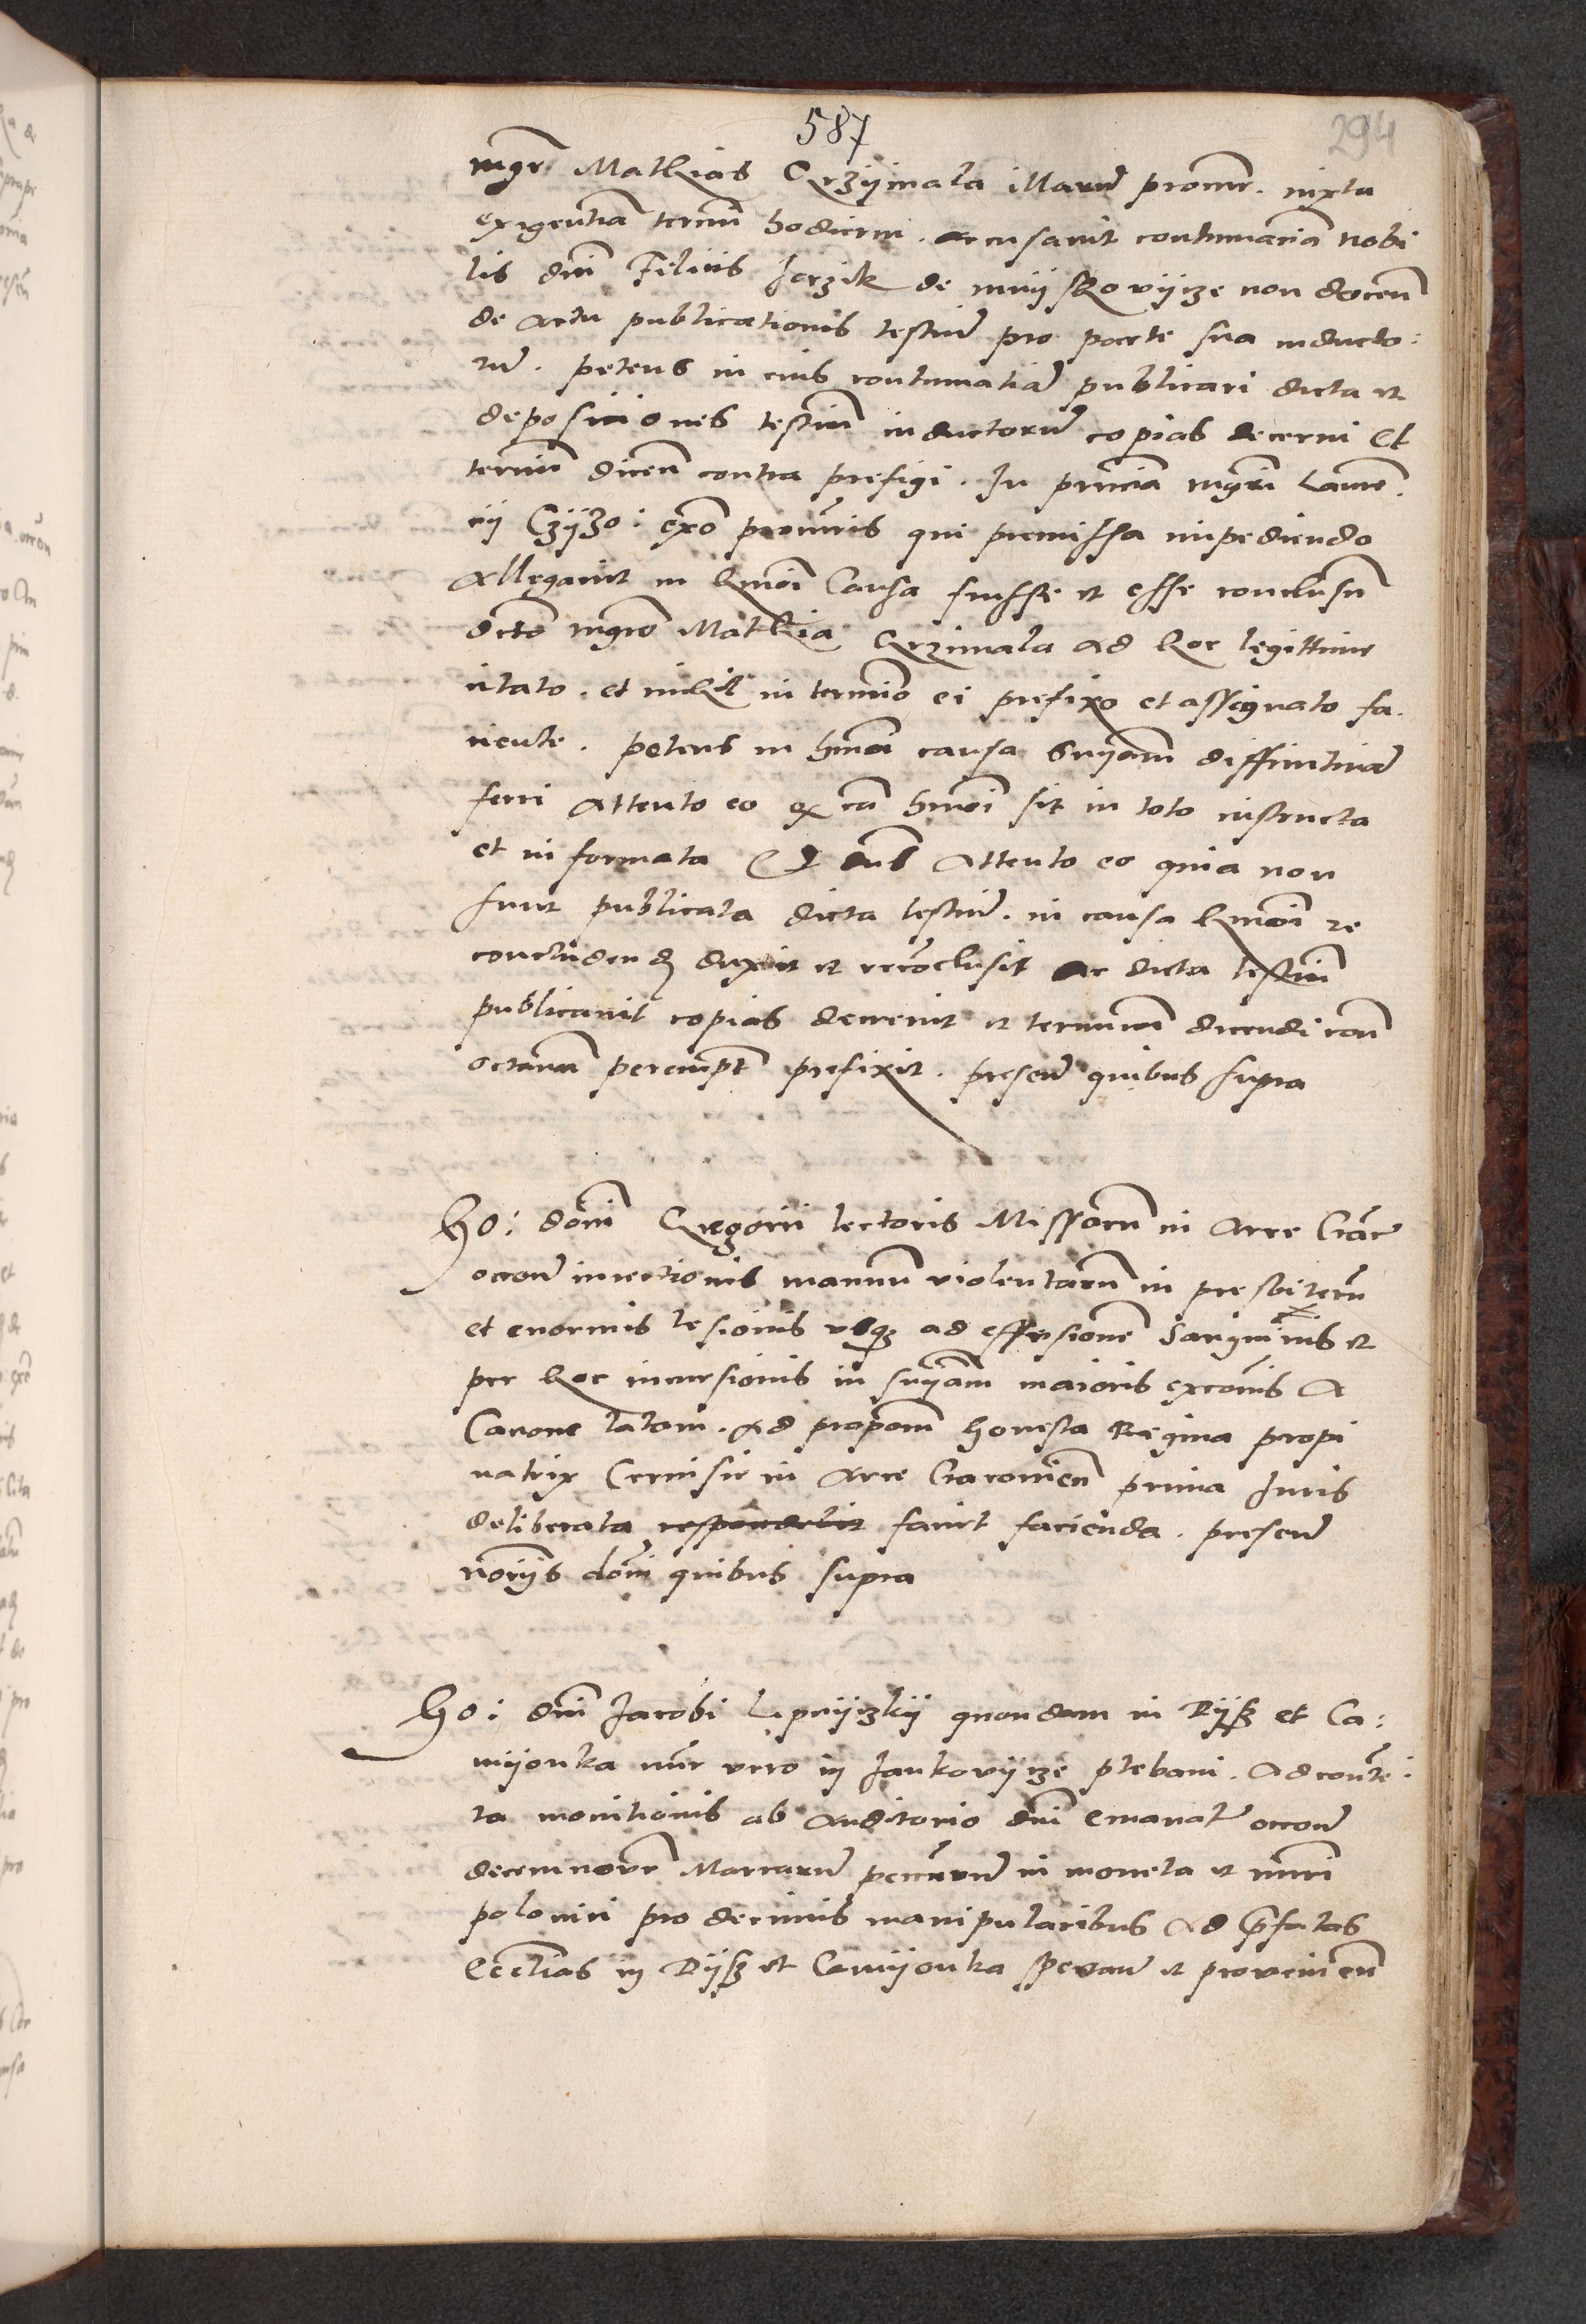 587
294
mgr Mathias Grzÿmala illarum procur. iuxta
exigentiam termi hodierni. accusavit contumaciam nobi
lis dni Felicis Jerzik de mnÿskovÿcze non docen
de actu publicationis testium pro parte sua inducto:
rum. petens in eius contumatiam publicari dicta et
deposiciones testium inductorum copias decerni Et
termin dicen contra prefigi. In pncia mgri Lauren.
cÿ Czÿzo: ex procuris qui premissa impediendo
Allegavit in hmoi Causa fuisse et esse conclusum
dcto mgro Mathia Grzimala ad hoc legittime
citato. et nihil in termino ei prefixo et assignato fa.
ciente. petens in hmoi causa snÿam diffinitivam
ferri Attento eo q ca hmoi sit in toto instructa
et informata Et dns Attento eo quia non
sunt publicata dicta testium. in causa hmoi re
concludend duxit et reconclusit ac dicta testium
publicavit copias decrevit et terminum dicendi con
octavam perempt prefixit. presen quibus supra
Ho: domi Gregorii lectoris Missarum in Arce Crac
occon iniectionis manuum violentarum in presbiterum
et enormis lesionis usq ad effusionem Sanguinis et
per hoc incursionis in snÿam maioris excois A
Canone latam. Ad proposm honesta Regina propi
natrix Cervisie in Arce Cracovien prima Juris
deliberata respondebit faciet facienda. presen
noriis domi quibus supra
Ho: dni Jacobi Lipnÿczkÿ quondam in Rÿss et Ca:
mÿonka nunc vero in Jankovÿcze plebani. Ad conten:
ta monitionis ab Auditorio dni emanat occon
decemnovem Marcarum pecuniarum in moneta et numi
polonici pro decimis manipularibus ad pfatas
Ecclias in Rÿss et Camÿonka spectan et provenien